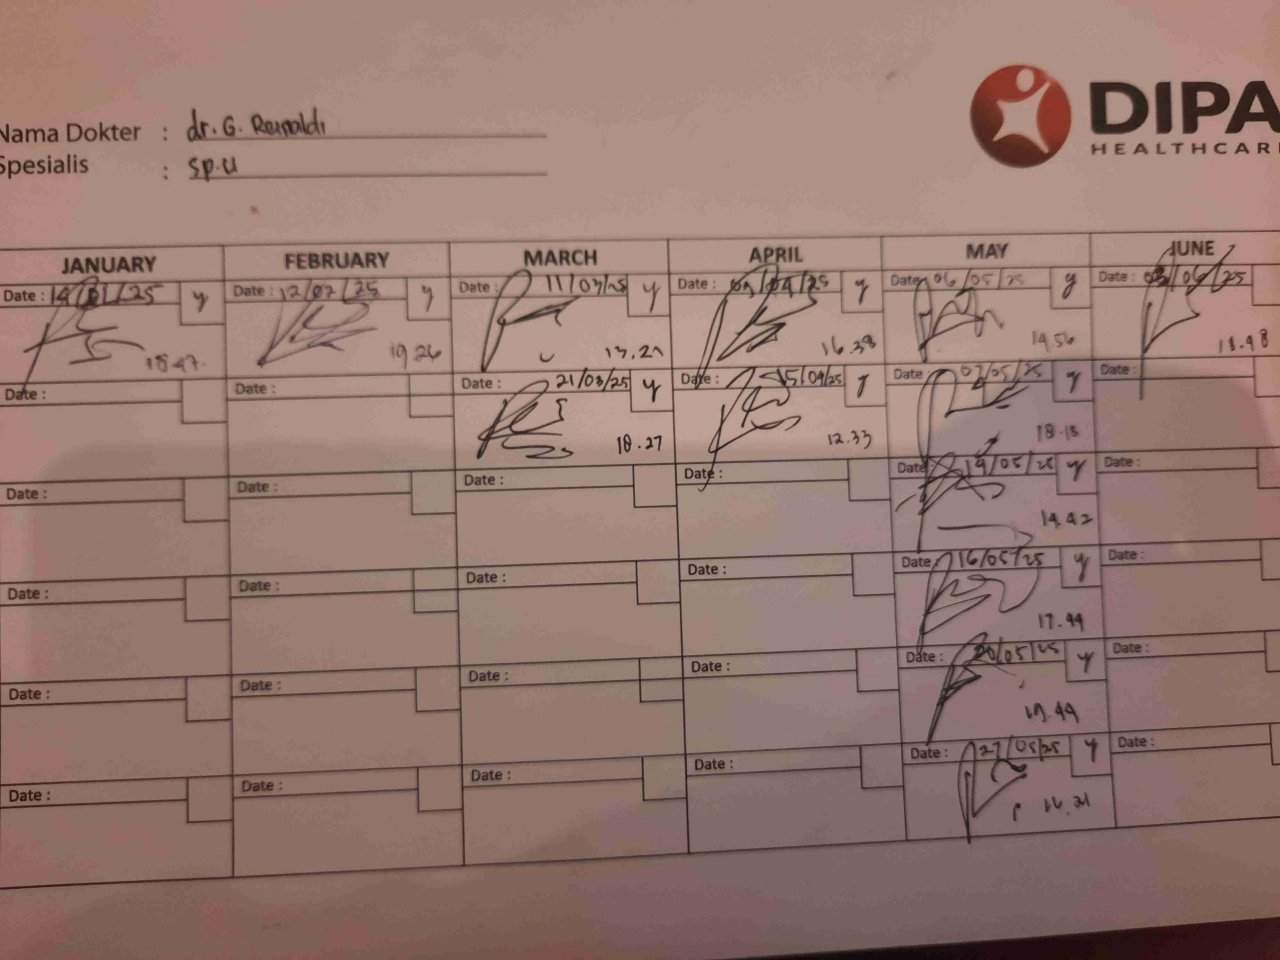 DIPA
HEALTHCAR
Nama Dokter : dr. G. Reinaldi
Spesialis : sp.u
JANUARY FEBRUARY MARCH APRIL MAY JUNE
Date : 14/01/25 y Date : 12/02/25 y Date : 11/03/25 y Date : 03/04/25 y Date : 06/05/25 y Date : 03/06/25
18.47 19.26 13.27 16.38 14.56 18.48
Date : Date : Date : 21/03/25 y Date : 15/04/25 y Date : 07/05/25 y Date :
18.27 12.33 18.18
Date : Date : Date : Date : Date : 14/05/25 y Date :
14.42
Date : Date : Date : Date : Date : 16/05/25 y Date :
17.44
Date : Date : Date : Date : Date : 20/05/25 y Date :
Date : Date : Date : Date : Date : 27/05/25 y Date :
16.21